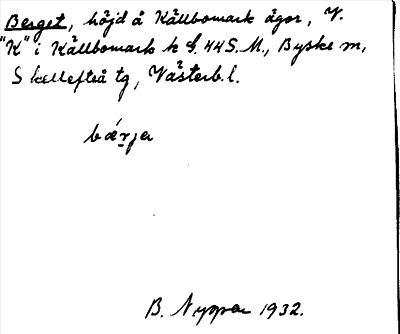 Berget, höjd å Källbomark ägor, V.
"K" i Källbomark k G.44S.M., Byske m,
Skellefteå tg, Västerb.l.
bǽrja
B. Nyman 1932.